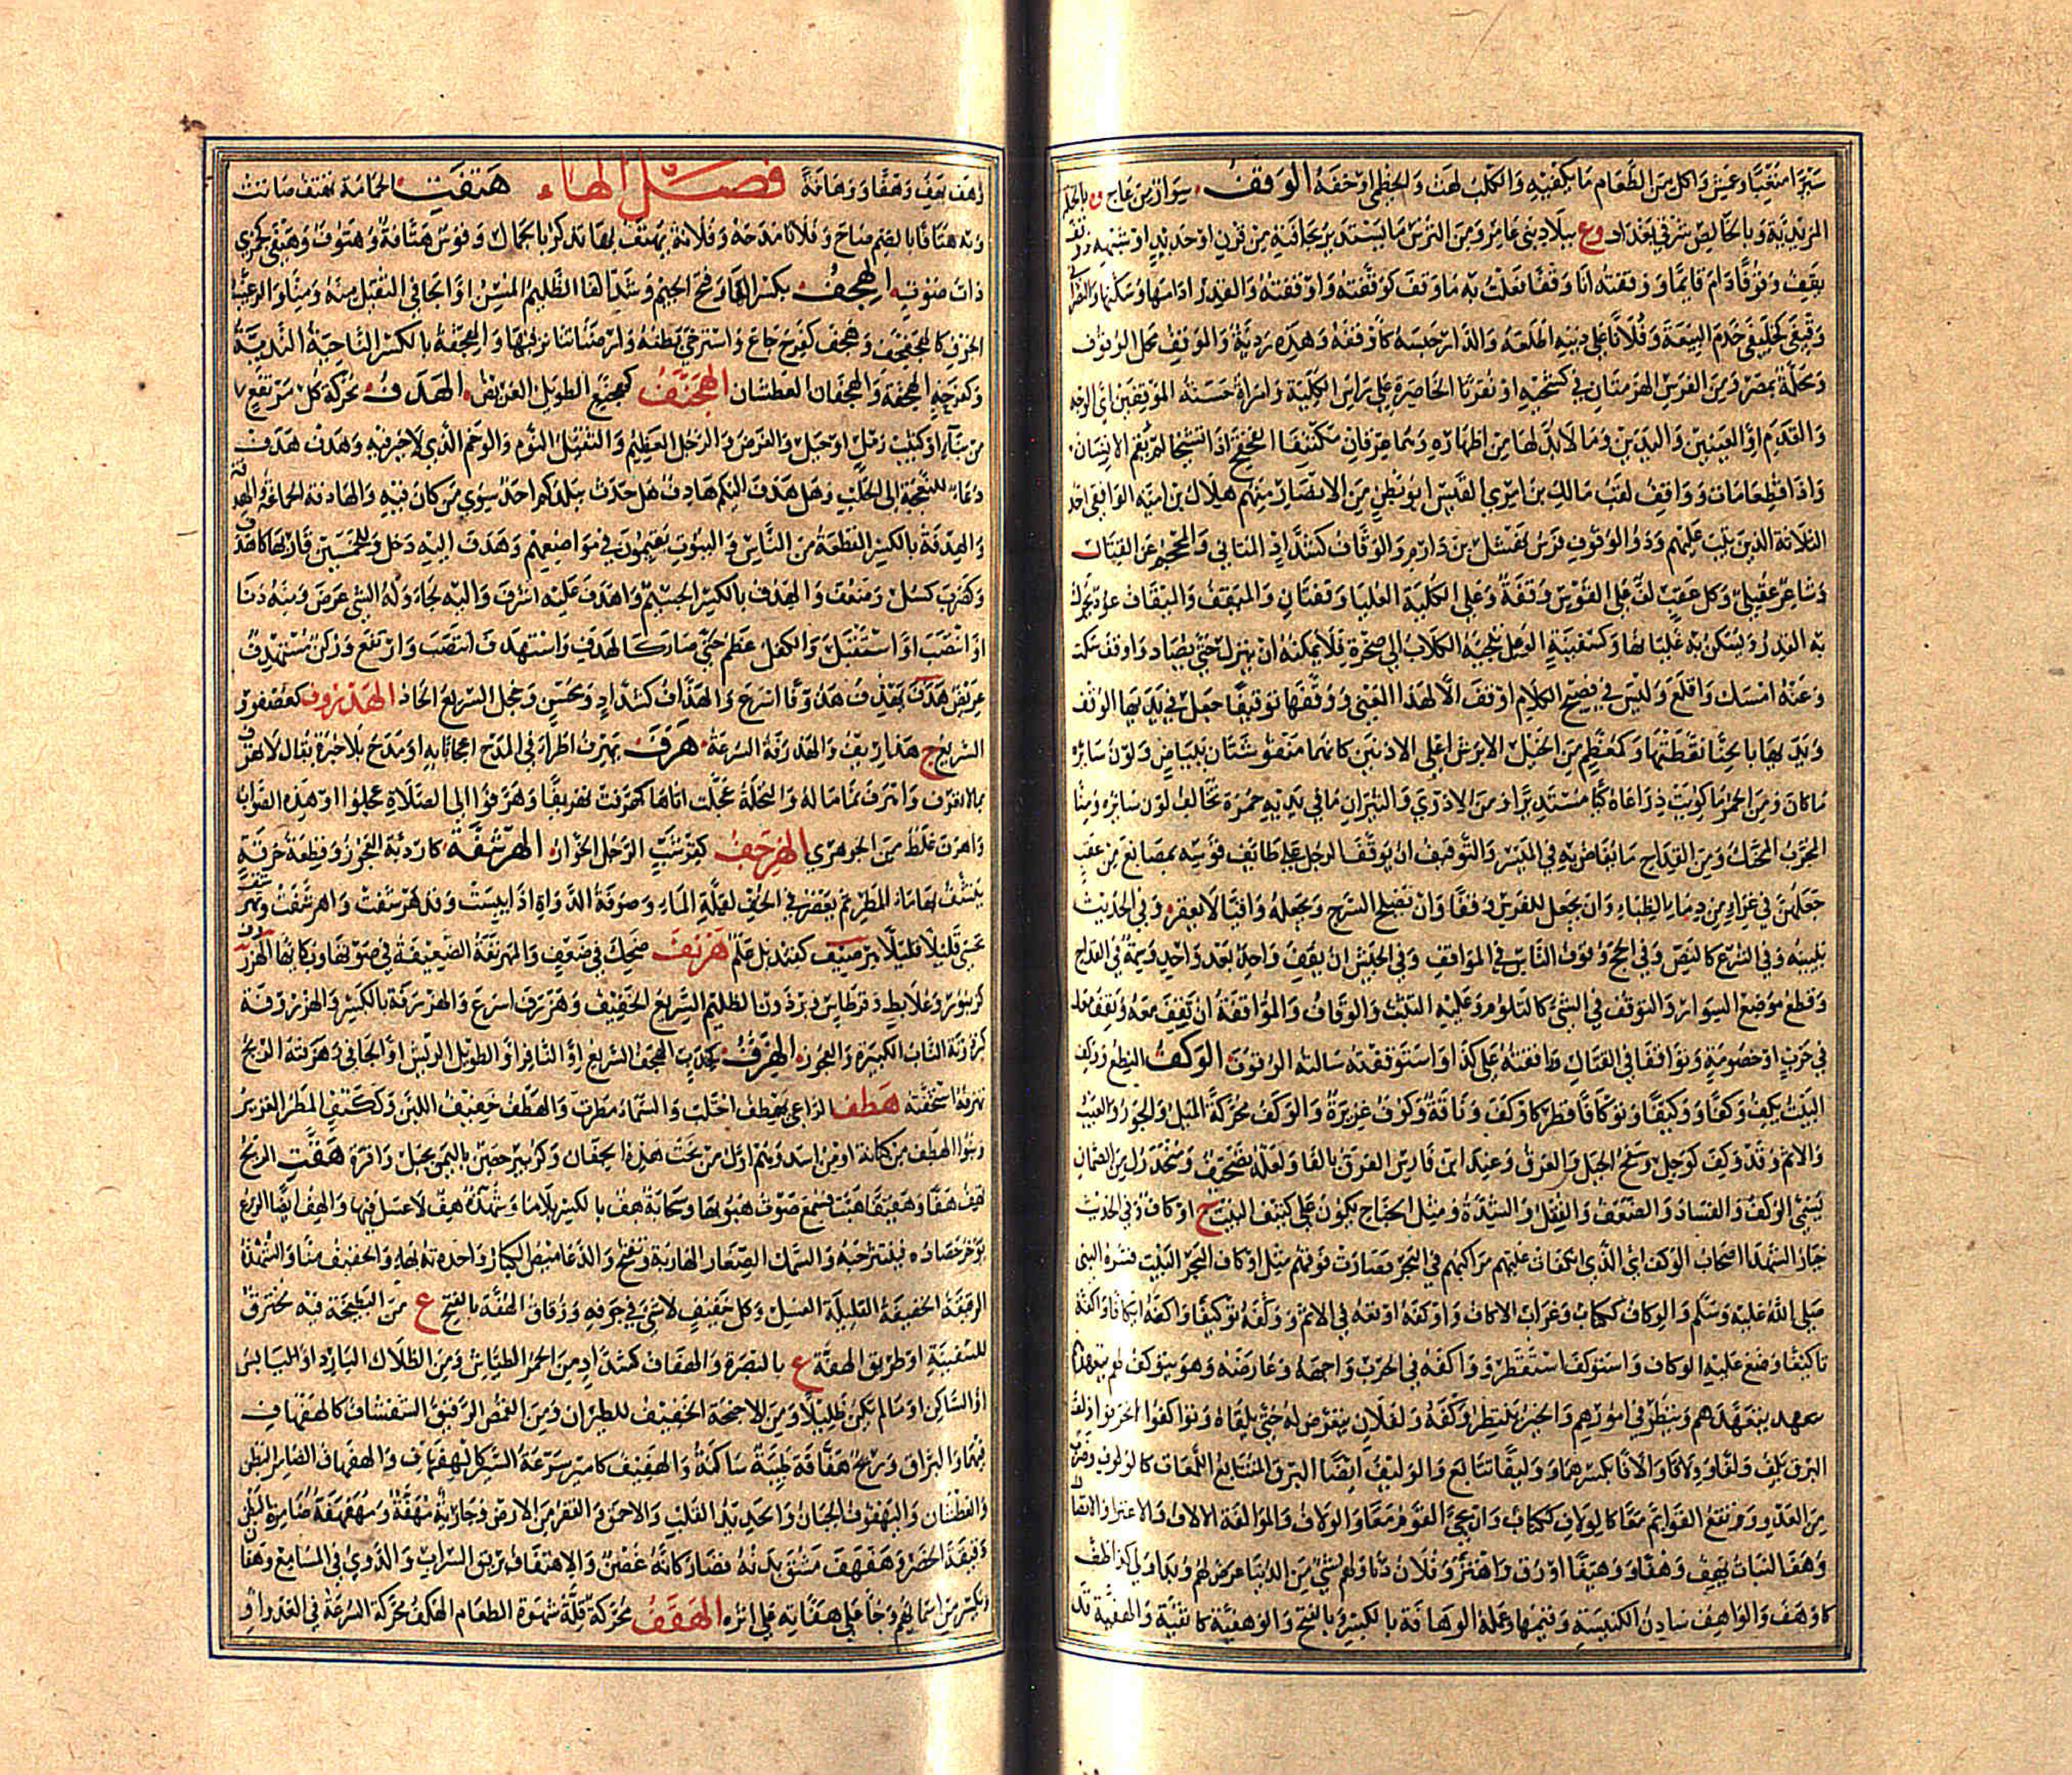 سيرا متعبا وعمش واكل من الطعام ما يكفيه والكلب لهث والخطمي اوخفه الوقف سوار من عاج وة بالحلة
المزيدية وبالخالص شرقي بغداد وع ببلاد بني عامر ومن الترس ما يستدير بحافته من قرن او حديد او شبهه وقف
يقف وقوفا دام قائما ووقفته انا وقفا فعلت به ما وقف كوقفته واوقفته والقدر ادامها وسكنها والنصراني
وقيفى كخليفى خدم البيعة وفلانا على ذنبه اطلعه والدار حبسه كاوقفه وهذه ردية والموقف محل الوقوف
ومحلة بمصر ومن الفرس الهزمتان في كشحيه او نقرتا الخاصرة على راس الكلية وامراة حسنة الموقفين اي الوجه
والقدم او العينين واليدين وما لا بد لها من اظهاره وهما عرقان مكتنفا القحقح اذا انتشجا لم يقم الانسان
واذا قطعا مات وواقف لقب مالك بن امرئ القيس ابو بطن من الانصار منهم هلال بن امية الواقفي احد
الثلاثة الذين تيب عليهم وذو الوقوف فرس نهشل بن دارم والوقاف كشداد المتاني والمحجم عن القتال
وشاعر عقيلي وكل عقب لف على القوس وقفة وعلى الكلية العليا وقفتان والميقف والميقاف عود يحرك
به القدر ويسكن به غليانها وكسفينة الوعل تلجئه الكلاب الى صخرة فلا يمكنه ان ينزل حتى يصاد واوقف سكت
وعنه امسك واقلع وليس في فصيح الكلام اوقف الا لهذا المعنى ووقفها توقيفا جعل في يديها الوقف
ويديها بالحنا نقطتها وكمعظم من الخيل الابرش اعلى الاذنين كانهما منقوشتان ببياض ولون سائره
ما كان ومن الحمر ما كويت ذراعاه كيا مستديرا ومن الاروى والثيران ما في يديه حمرة تخالف لون سائره ومنا
المجرب المحنك ومن القداح ما يفاض به في الميسر والتوقيف ان يوقف الرجل على طائف قوسه بمضائغ من عقب
جعلهن في غراء من دماء الظباء وان يجعل للفرس وقفا وان يصلح السرج ويجعله واقيا لا يعقر وفي الحديث
تبيينه وفي الشرع كالنص وفي الحج وقوف الناس في المواقف وفي الجيش ان يقف واحد بعد واحد وسمة في القداح
وقطع موضع السوار والتوقف في الشئ كالتلوم وعليه التثبت والوقاف والمواقفة ان تقف معه ويقف معك
في حرب او خصومة وتواقفا في القتال وواقفته على كذا واستوقفته سالته الوقوف الوكف النطع ووكف
البيت يكف وكفا ووكيفا وتوكافا قطر كاوكف وناقة وكوف غزيرة والوكف محركة الميل والجور والعيب
والاثم وقد وكف كوجل وسفح الجبل والعرق وعند ابن فارس الفرق بالفا ولعله تصحيف ومنحدرك من الصمان
يسمى الوكف والفساد والضعف والثقل والشدة ومثل الجناح يكون على كنيف البيت ج اوكاف وفي الحديث
خيار الشهدا اصحاب الوكف اي الذي انكفات عليهم مراكبهم في البحر فصارت فوقهم مثل اوكاف البحر البيت فسره النبي
صلى الله عليه وسلم والوكاف ككتاب وغراب الاكاف واوكفه اوقعه في الاثم ووكفه توكيفا واكفه ايكافا واكفه
تاكيفا وضع عليه الوكاف واستوكف استقطر وواكفه في الحرب واجهه وعارضه وهو يتوكف لهم يتعهدهم
يتعهدهم وينظر في امورهم والخبر ينتظر وكفه ولفلان يتعرض له حتى يلقاه وتواكفوا انحرفوا ولف
البرق يلف ولفا وولافا والافا بكسرهما ووليفا تتابع والوليف ايضا البرق المتتابع اللمعات كالولوف وضرب
من العدو وهو تقع القوائم معا كالولاف ككتاب وان يجئ القوم معا والولاف والموالفة الالاف والاعتزا والاتصال
وهف النبات يهف وهفا ووهيفا اورق واهتز وفلان دنا ولهم شئ من الدنيا عرض لهم وبدا ولي كذا طف
كاوهف والواهف سادن الكنيسة وقيمها وعمله الوهافة بالكسر وبالفتح والوهفية كاثفية والهفية قد
وهف يهف وهفا ووهافة فصل الهاء هتفت الحمامة تهتف صاتت
وبه هتافا بالضم صاح وفلانا مدحه وفلانة يهتف بها تذكر بالجمال وقوس هتافة وهتوف وهتفى كجمزى
ذات صوت الهجف بكسر الهاء وفتح الجيم وشد الفا الظليم المسن او الجافي الثقيل منه ومنا والرغيب
الجوف كالهجفجف وهجف كفرح جاع واسترخى بطنه ولزمتنا ثنا والهجفة بالكسر الناحية الندية
وكفرحة الهجفة والهجفان العطشان الهجنف كهجنع الطويل العريض الهدف محركة كل مرتفع
من بناء او كثيب رمل او جبل والغرض والرجل العظيم والثقيل النوم والوخم الذي لا خير فيه وهدف هدف
دعاء للنعجة الى الحلب وهل هدف اليكم هادف هل حدث ببلدكم احد سوى من كان فيه والهادفة الجماعة والهدفة
والهدفة بالكسر القطعة من الناس والبيوت يقيمون في مواضعهم وهدف اليه دخل وللخمسين قاربها كاهدف
وكضرب كسل وضعف والهدف بالكسر الجسيم واهدف عليه اشرف واليه لجا وله الشئ عرض ومنه دنا
او انتصب او استقبل والكفل عظم حتى صار كالهدف واستهدف انتصب وارتفع وركن مستهدف
عريض هذف يهذف هذوفا اسرع والهذاف كشداد ومحسن وخجل السريع الحاد الهذروف كعصفور
السريع ج هذاريف والهذرفة السرعة هرف يهرف اطرا في المدح اعجابا به او مدح بلا خبرة يقال لا تهرف
بما لا تعرف واهرف نما ماله والنخلة عجلت اتاها كهرفت تهريفا وهرفوا الى الصلاة عجلوا او هذه الصواب
واهرف غلط من الجوهري الهرجف كقرشب الرجل الخوار الهرشفة كاردبة العجوز وقطعة خرقة
ينشف بها ماء المطر ثم يعصر في الجف لقلة الماء وصوفة الدواة اذا يبست وقد هرشفت واهرشفت وتهرشف
تحسى قليلا قليلا كقنديل علم هرنف ضحك في ضعف والمهرنفة الضعيفة في صوتها وبكائها الهزرف
كزنبور وعلابط وقرطاس وبرذون الظليم السريع الخفيف وهزرف اسرع والهزرفة بالكسر والهزروفة
كبرذونة الناب الكبيرة والعجوز الهزف كخدب الهجف السريع او النافر او الطويل الريش او الجافي وهزفته الريح
تهزفه استخفته هطف الراعي يهطف احتلب والسماء مطرت والهطف حفيف اللبن وككتف المطر الغزير
وبنوا الهطف من كنانة او من اسد وهم اول من نحت هذه الجفان وكزبير حصن باليمن بجبل واقرة هفت الريح
تهف هفا وهفيفا هبت فسمع صوت هبوبها وسحابة هف بالكسر بلا ماء وشهدة هف لا عسل فيها والهف ايضا الزرع
يؤخر حصاده فينتثر حبه والسمك الصغار الهاربة وتفتح والدعاميص الكبار واحدته بهاء والخفيف منا والشهدة
الرقيقة الخفيفة القليلة العسل وكل خفيف لا شئ في جوفه وزقاق الهفة بالفتح ع من البطيحة فيه مخترق
للسفينة او طريق الهفة ع بالبصرة والهفاف كشداد من الحمر الطياش ومن الظلال البارد او اليابس
او الساكن او ما لم يكن ظليلا ومن الاجنحة الخفيف للطيران ومن القمص الرقيق الشفاف كالهفهاف
فيهما والبراق وريح هفافة طيبة ساكنة والهفيف كامير سرعة السير كالهفهاف والهفهاف الضامر البطن
والعطشان واليهفوف الجبان والحديد القلب والاحمق والقفر من الارض وجارية مهففة ومهفهفة ضامرة البطن
دقيقة الخصر وهفهف مشق بدنه فصار كانه غصن والاهتفاف بريق السراب والدوي في المسامع وهفان
وتكسر من اسمائهم وجا على هفانه على اثره الهقف محركة قلة شهوة الطعام الهكف محركة السرعة في العدو او